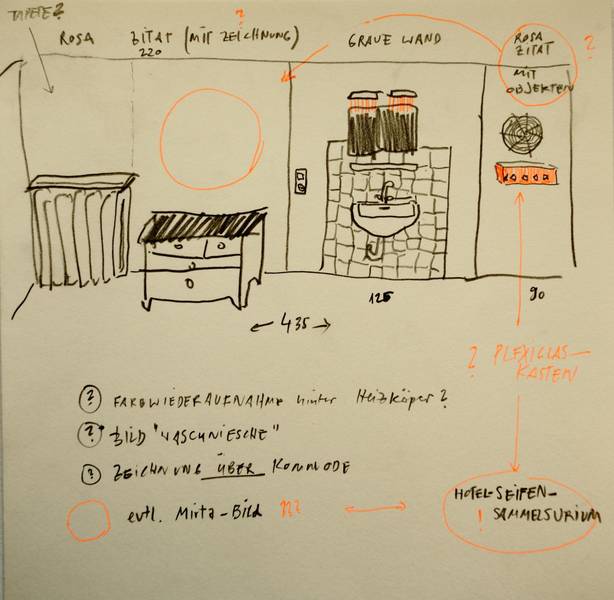 TAPETE?
ROSA
ZITAT (MIT ZEICHNUNG)
?
220
GRAUE WAND
ROSA
ZITAT
MIT
OBJEKTEN
?
125
90
← 435 →
? PLEXIGLAS-
KASTEN
? FARBWIEDERAUFNAHME hinter Heizköper?
? BILD "WASCHNIESCHE"
? ZEICHNUNG ÜBER KOMMODE
evtl. Mirta-Bild
HOTEL-SEIFEN-
! SAMMELSURIUM